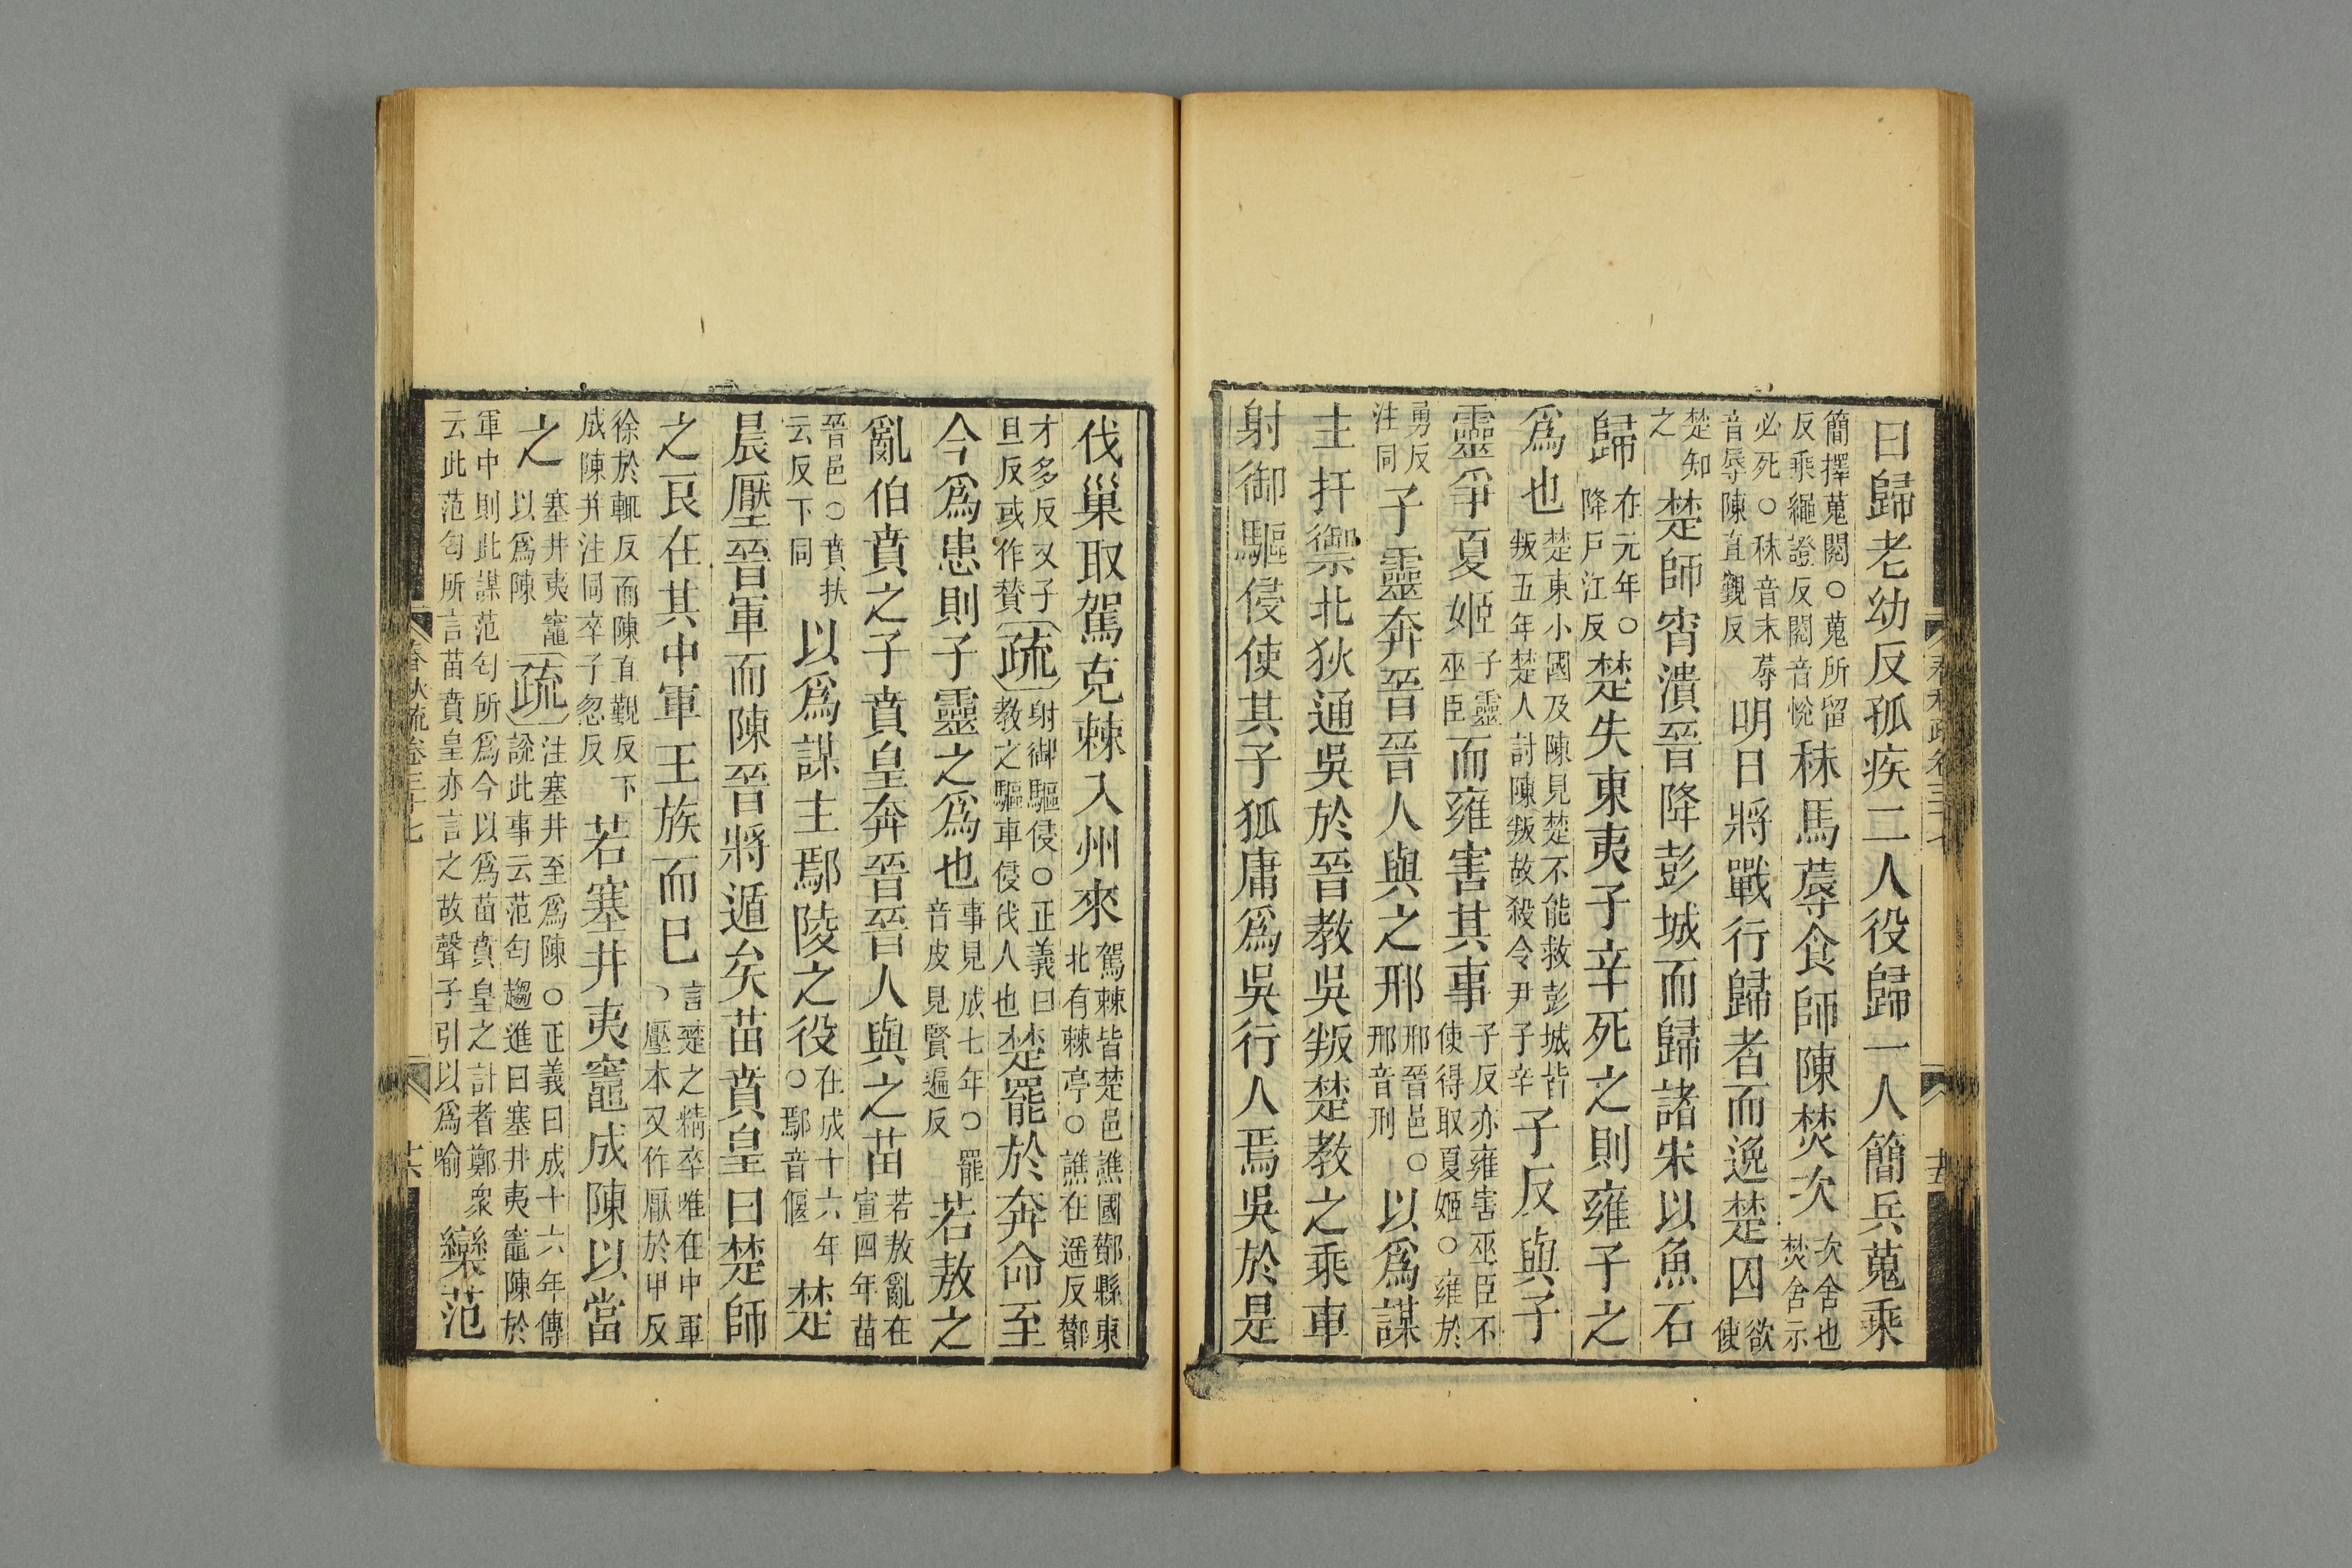 曰歸老幼反孤疾二人役歸一人簡兵蒐乘
簡擇蒐閱○蒐所留反乘繩證反閱音悅秣馬蓐食師陳焚次次舍也焚舍示
必死○秣音末蓐音辱陳直覲反明日將戰行歸者而逸楚囚欲使
楚知之楚師宵潰晉降彭城而歸諸宋以魚石
歸在元年○降戶江反楚失東夷子辛死之則雍子之
爲也楚東小國及陳見楚不能救彭城皆叛五年楚人討陳叛故殺令尹子辛子反與子
靈爭夏姬子靈巫臣而雍害其事子反亦雍害巫臣不使得取夏姬○雍於
勇反注同子靈奔晉晉人與之邢邢晉邑○邢音刑以爲謀
主扞禦北狄通吳於晉教吳叛楚教之乘車
射御驅侵使其子狐庸爲吳行人焉吳於是
春秋疏卷三十七
伐巢取駕克棘入州來駕棘皆楚邑譙國酇縣東北有棘亭○譙在遥反酇
才多反又子旦反或作贊疏射御驅侵○正義曰教之驅車侵伐人也楚罷於奔命至
今爲患則子靈之爲也事見成七年○罷音皮見賢遍反若敖之
亂伯賁之子賁皇奔晉晉人與之苗若敖亂在宣四年苗
晉邑○賁扶云反下同以爲謀主鄢陵之役在成十六年○鄢音偃楚
晨壓晉軍而陳晉將遁矣苗賁皇曰楚師
之良在其中軍王族而巳言楚之精卒唯在中軍、壓本又作厭於甲反
徐於輒反而陳直覲反下成陳幷注同卒子忽反若塞井夷竈成陳以當
之塞井夷竈以爲陳疏注塞井至爲陳○正義曰成十六年傳說此事云范匄趨進曰塞井夷竈陳於
軍中則此謀范匄所爲今以爲苗賁皇之計者鄭衆云此范匄所言苗賁皇亦言之故聲子引以爲喻欒范
春秋疏卷三十七